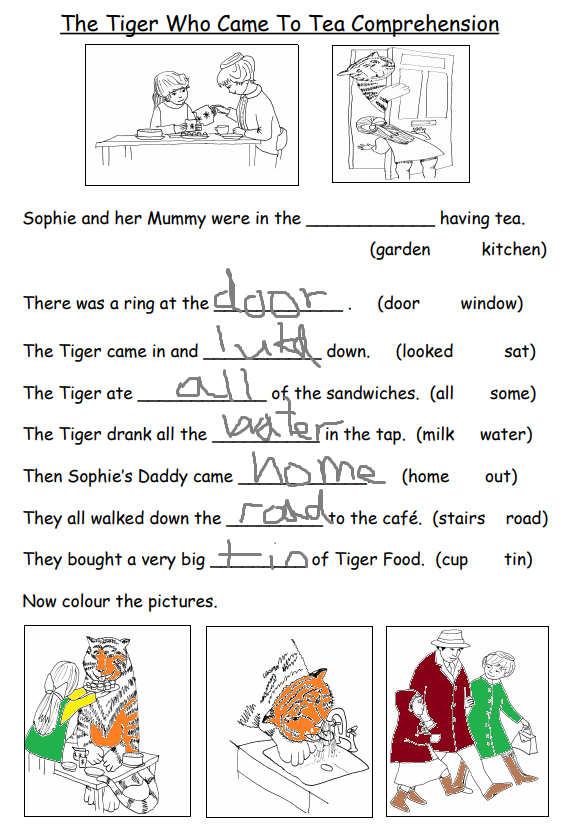 The Tiger Who Came To Tea Comprehension
Sophie and her Mummy were in the ______________ having tea.
(garden kitchen)
There was a ring at the door . (door window)
The Tiger came in and lukd down. (looked sat)
The Tiger ate all of the sandwiches. (all some)
The Tiger drank all the water in the tap. (milk water)
Then Sophie's Daddy came home (home out)
They all walked down the road to the café. (stairs road)
They bought a very big tin of Tiger Food. (cup tin)
Now colour the pictures.